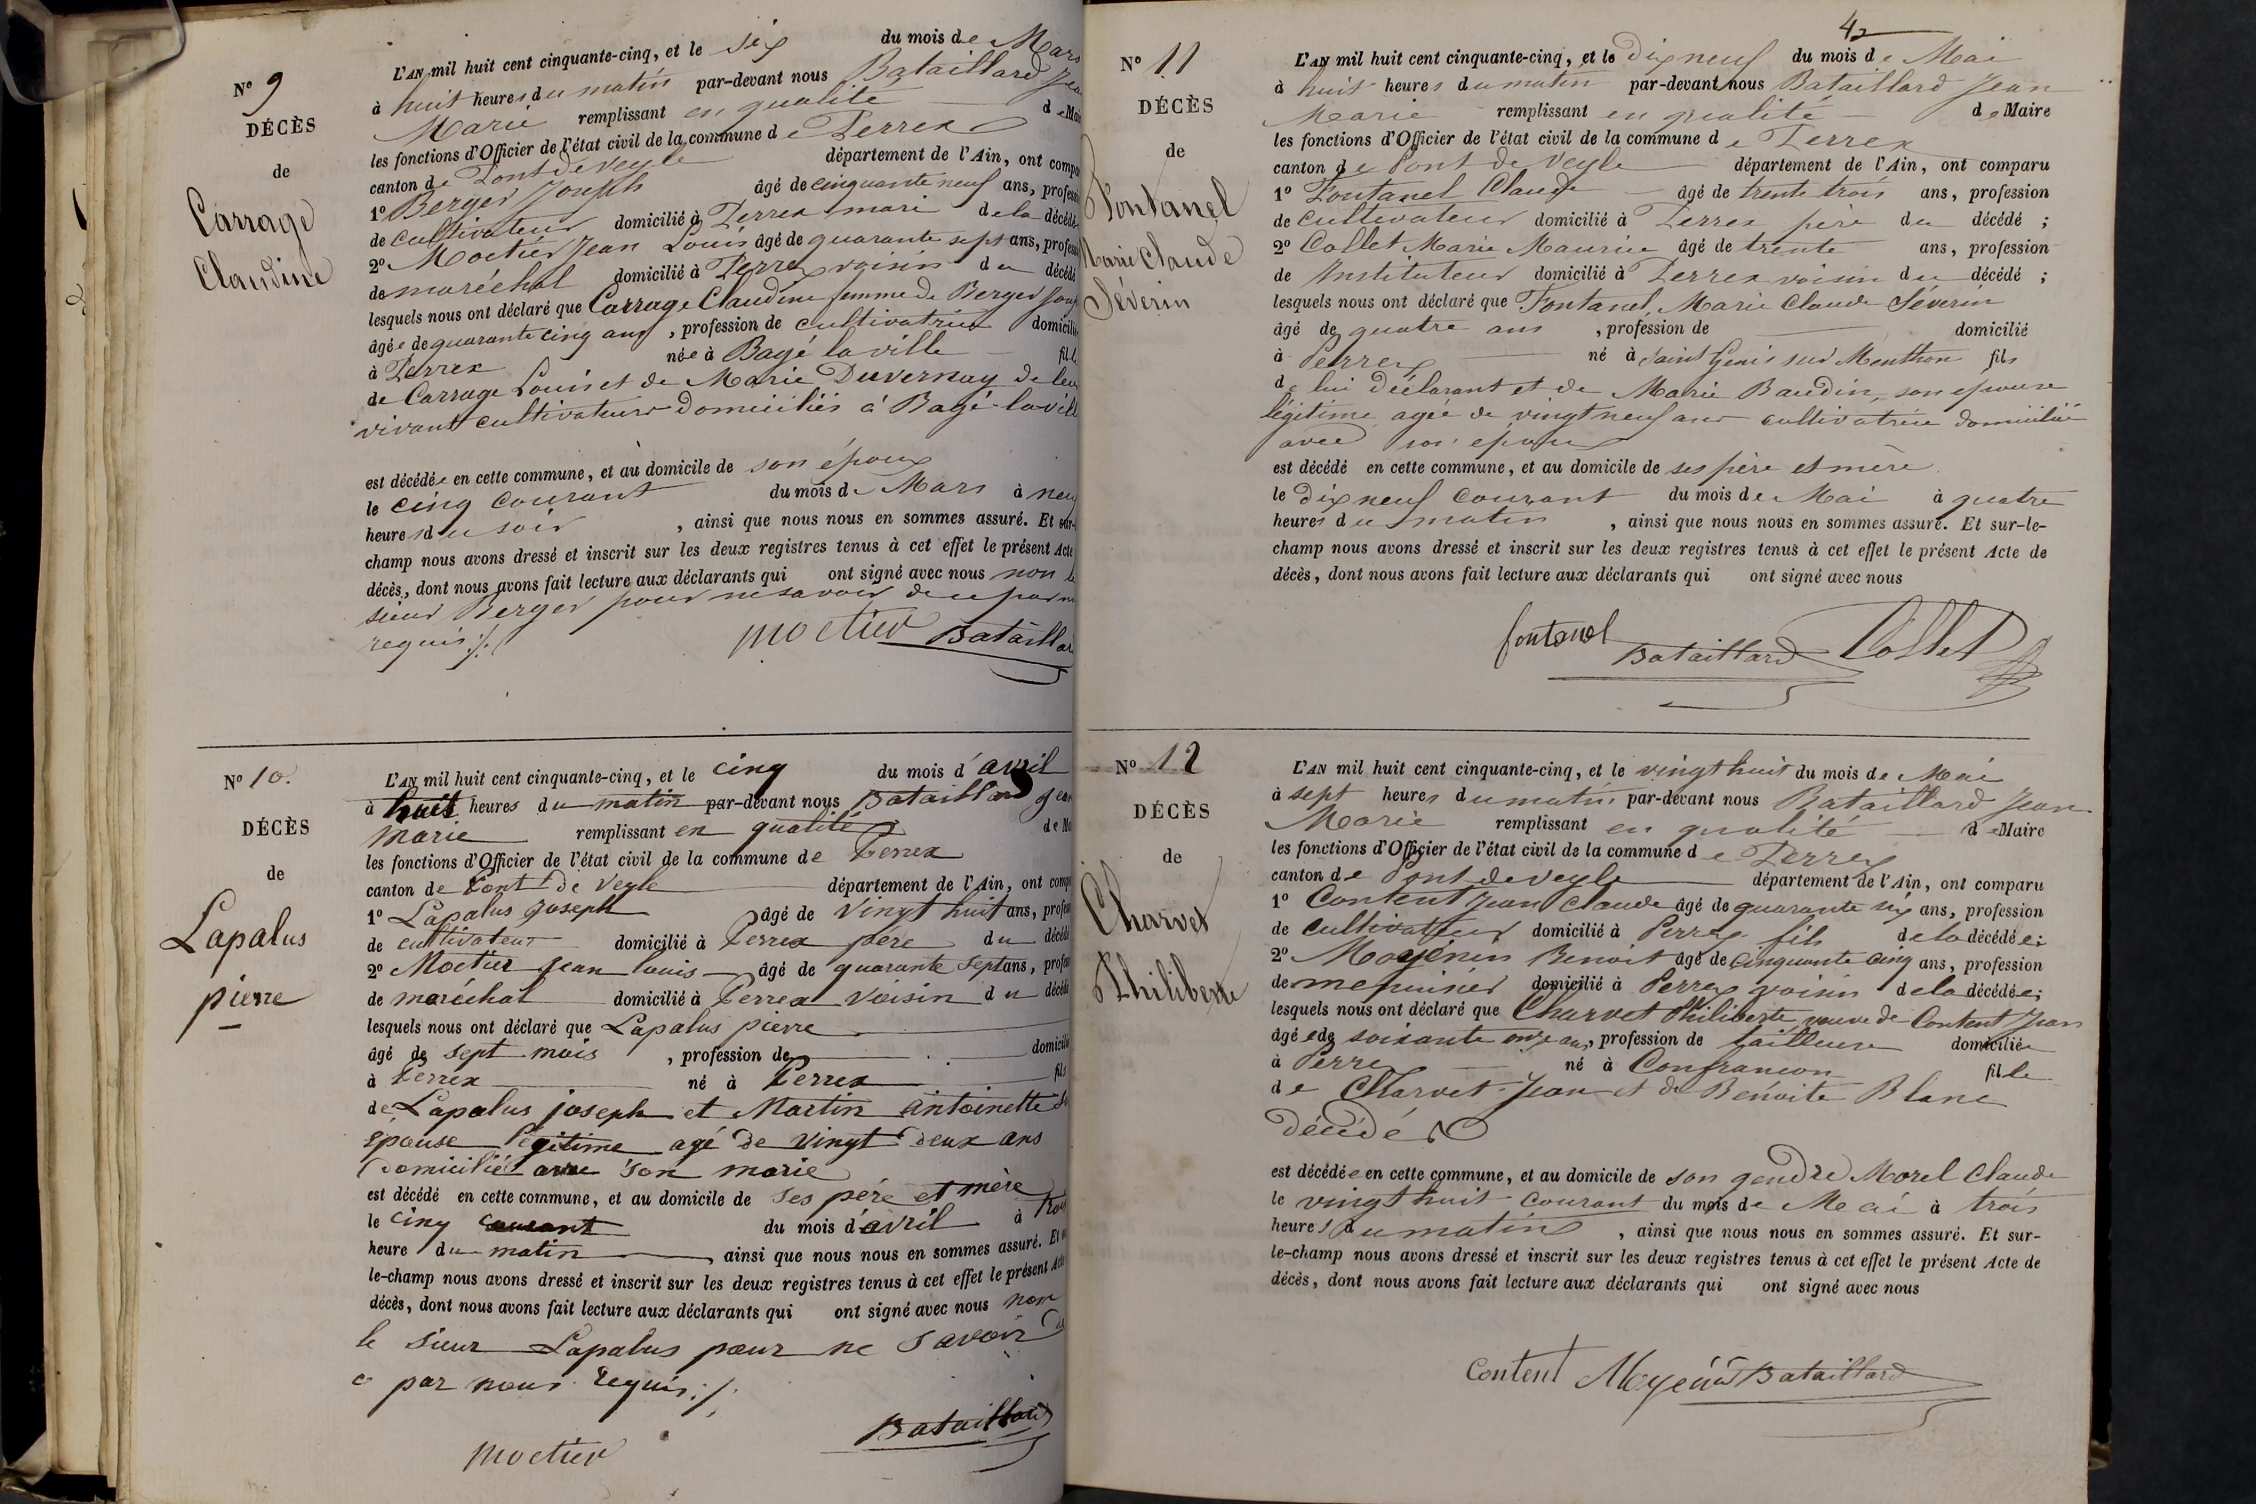 Nº 9
DÉCÈS
de
Carrage
Claudine
L'AN mil huit cent cinquante-cinq, et le six du mois de Mars
à huit heures du matin par-devant nous Bataillard Jean
Marie remplissant en qualité de Mai
les fonctions d'Officier de l'état civil de la commune de Perrex
canton de Pont de Veyle département de l'Ain, ont compa
1º Berger Joseph âgé de cinquante neuf ans, profess
de cultivateur domicilié à Perrex mari de la décédé
2º Moctier Jean Louis âgé de quarante sept ans, profess
de maréchal domicilié à Perrex voisin du décédé
lesquels nous ont déclaré que Carrage Claudine femme de Berger Jos
âgée de quarante cinq ans, profession de cultivatrice domicilié
à Perrex née à Bagé la ville fille
de Carrage Louis et de Marie Duvernay de leur
vivant cultivateurs domiciliés à Bagé-la-ville
est décédée en cette commune, et au domicile de son époux
le cinq courant du mois de Mars à neuf
heures du soir, ainsi que nous nous en sommes assuré. Et sur-
champ nous avons dressé et inscrit sur les deux registres tenus à cet effet le présent Acte
décès, dont nous avons fait lecture aux déclarants qui ont signé avec nous non le
sieur Berger pour ne savoir de ce par nous
requis ./.
Moctier Bataillard
Nº 10.
DÉCÈS
de
Lapalus
pierre
L'AN mil huit cent cinquante-cinq, et le cinq du mois d'avril
à huit heures du matin par-devant nous Bataillard Jean
marie remplissant en qualité de Ma
les fonctions d'Officier de l'état civil de la commune de Perrex
canton de Pont de Veyle département de l'Ain, ont comp
1º Lapalus joseph âgé de vingt huit ans, profess
de cultivateur domicilié à Perrex père du décédé
2º Moctier Jean louis âgé de quarante sept ans, profess
de maréchal domicilié à Perrex voisin du décédé
lesquels nous ont déclaré que Lapalus pierre
âgé de sept mois, profession de domicilié
à Perrex né à Perrex fils
de Lapalus joseph et Martin antoinette
épouse légitime agé de vingt deux ans
domicilié avec son marie
est décédé en cette commune, et au domicile de ses père et mère
le cinq courant du mois d'avril à trois
heure du matin ainsi que nous nous en sommes assuré. Et
le-champ nous avons dressé et inscrit sur les deux registres tenus à cet effet le présent Acte
décès, dont nous avons fait lecture aux déclarants qui ont signé avec nous non
le sieur Lapalus pour ne savoir de
ce par nous requis ./.
Moctier Bataillard
42
Nº 11
DÉCÈS
de
Fontanel
Marie Claude
Séverin
L'AN mil huit cent cinquante-cinq, et le dix neuf du mois de Mai
à huit heures du matin par-devant nous Bataillard Jean
Marie remplissant en qualité de Maire
les fonctions d'Officier de l'état civil de la commune de Perrex
canton de Pont de Veyle département de l'Ain, ont comparu
1º Fontanel Claude âgé de trente trois ans, profession
de cultivateur domicilié à Perrex père du décédé ;
2º Collet Marie Maurice âgé de trente ans, profession
de Instituteur domicilié à Perrex voisin du décédé ;
lesquels nous ont déclaré que Fontanel, Marie Claude Séverin
âgé de quatre ans, profession de domicilié
à Perrex né à Saint Genis sur Menthon fils
de lui déclarant et de Marie Baudin, son épouse
légitime agée de vingt neuf ans cultivatrice domiciliée
avec son époux
est décédé en cette commune, et au domicile de ses père et mère
le dix neuf courant du mois de Mai à quatre
heures du matin, ainsi que nous nous en sommes assuré. Et sur-le-
champ nous avons dressé et inscrit sur les deux registres tenus à cet effet le présent Acte de
décès, dont nous avons fait lecture aux déclarants qui ont signé avec nous
fontanel Bataillard Collet
Nº 12
DÉCÈS
de
Charvet
Philiberte
L'AN mil huit cent cinquante-cinq, et le vingt huit du mois de Mai
à sept heures du matin par-devant nous Bataillard Jean
Marie remplissant en qualité de Maire
les fonctions d'Officier de l'état civil de la commune de Perrex
canton de Pont de veyle département de l'Ain, ont comparu
1º Content Jean Claude âgé de quarante six ans, profession
de cultivateur domicilié à Perrex fils de la décédée ;
2º Moyénin Benoit âgé de cinquante cinq ans, profession
de menuisier domicilié à Perrex voisin de la décédée ;
lesquels nous ont déclaré que Charvet Philiberte veuve de Content Jean
âgée de soixante onze ans, profession de tailleuse domiciliée
à Perrex né à Confrancon fille
de Charvet Jean et de Benoite Blanc
décédés
est décédée en cette commune, et au domicile de son gendre Morel Claude
le vingt huit courant du mois de Mai à trois
heures du matin, ainsi que nous nous en sommes assuré. Et sur-
le-champ nous avons dressé et inscrit sur les deux registres tenus à cet effet le présent Acte de
décès, dont nous avons fait lecture aux déclarants qui ont signé avec nous
Content Moyénin Bataillard